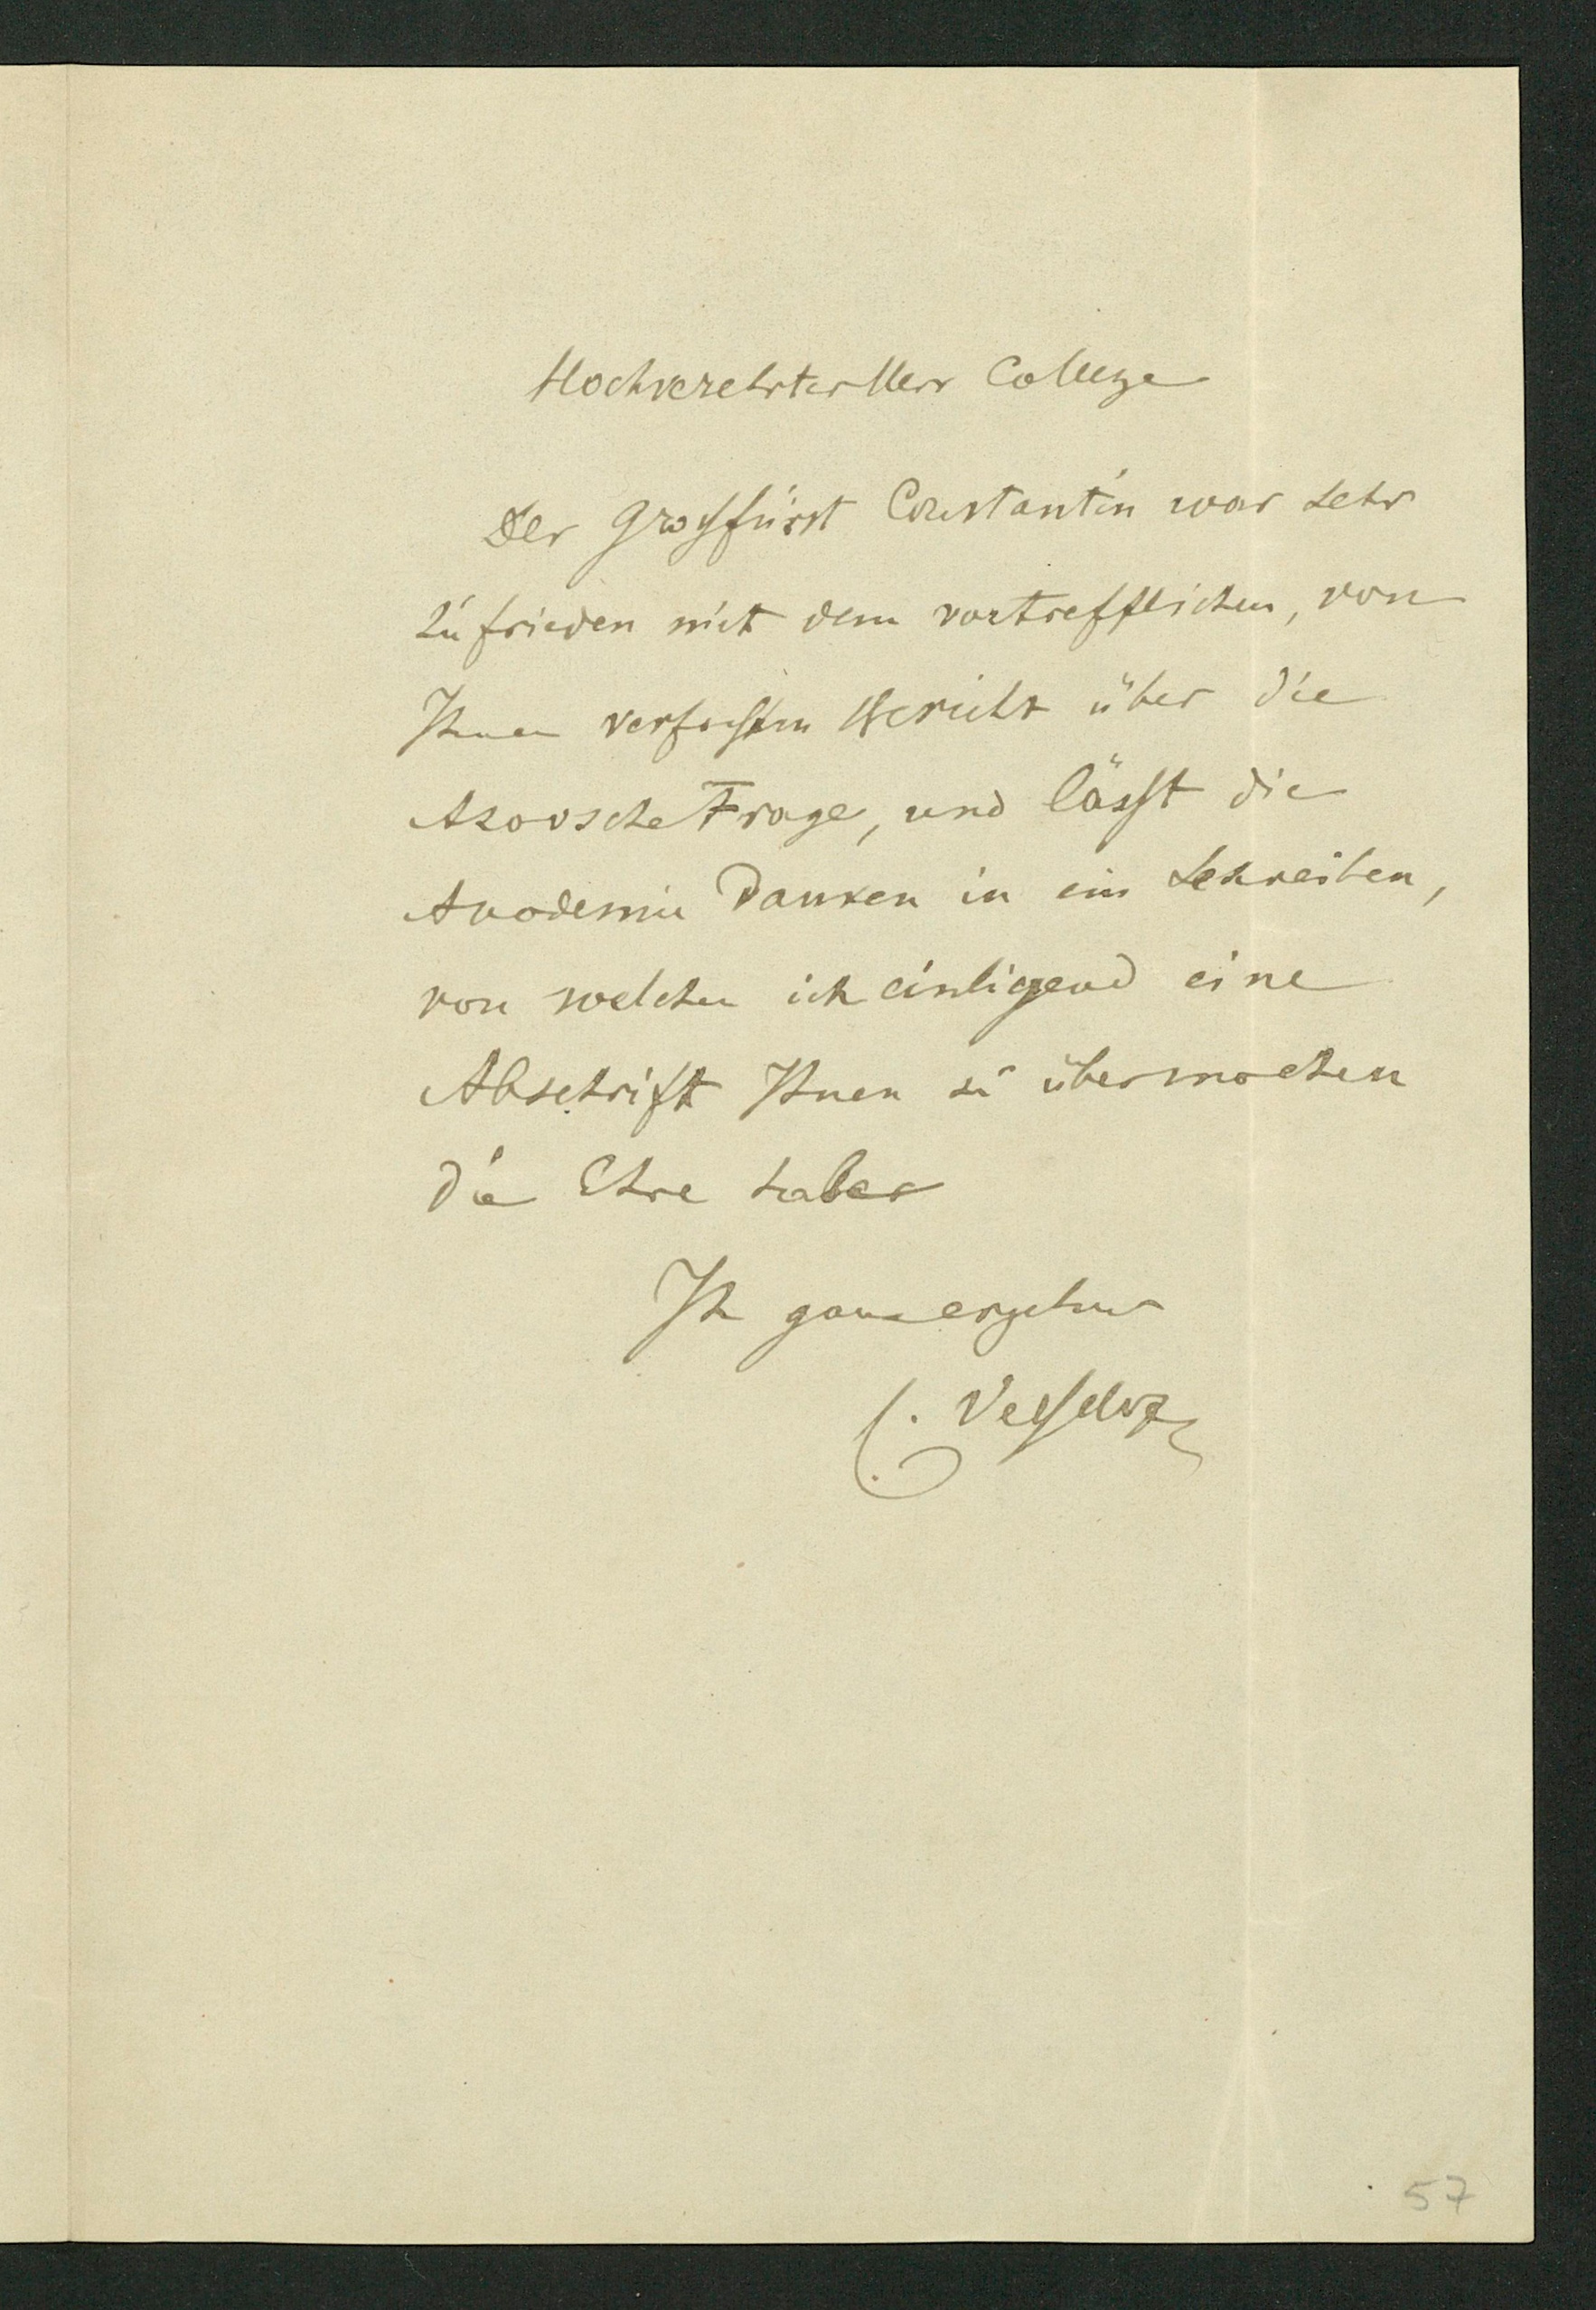 Hochverehrter Herr College
Der Großfürst Constantin war sehr
zufrieden mit dem vortrefflichen, von
Ihnen verfaßten Bericht über die
Asovsche Frage, und lässt die
Akademie Danken in ein Schreiben,
von welchen ich einligend eine
Abschrift Ihnen zu übermachen
die Ehre habe
Ihr ganz ergebener
C. Vesselovsky
57